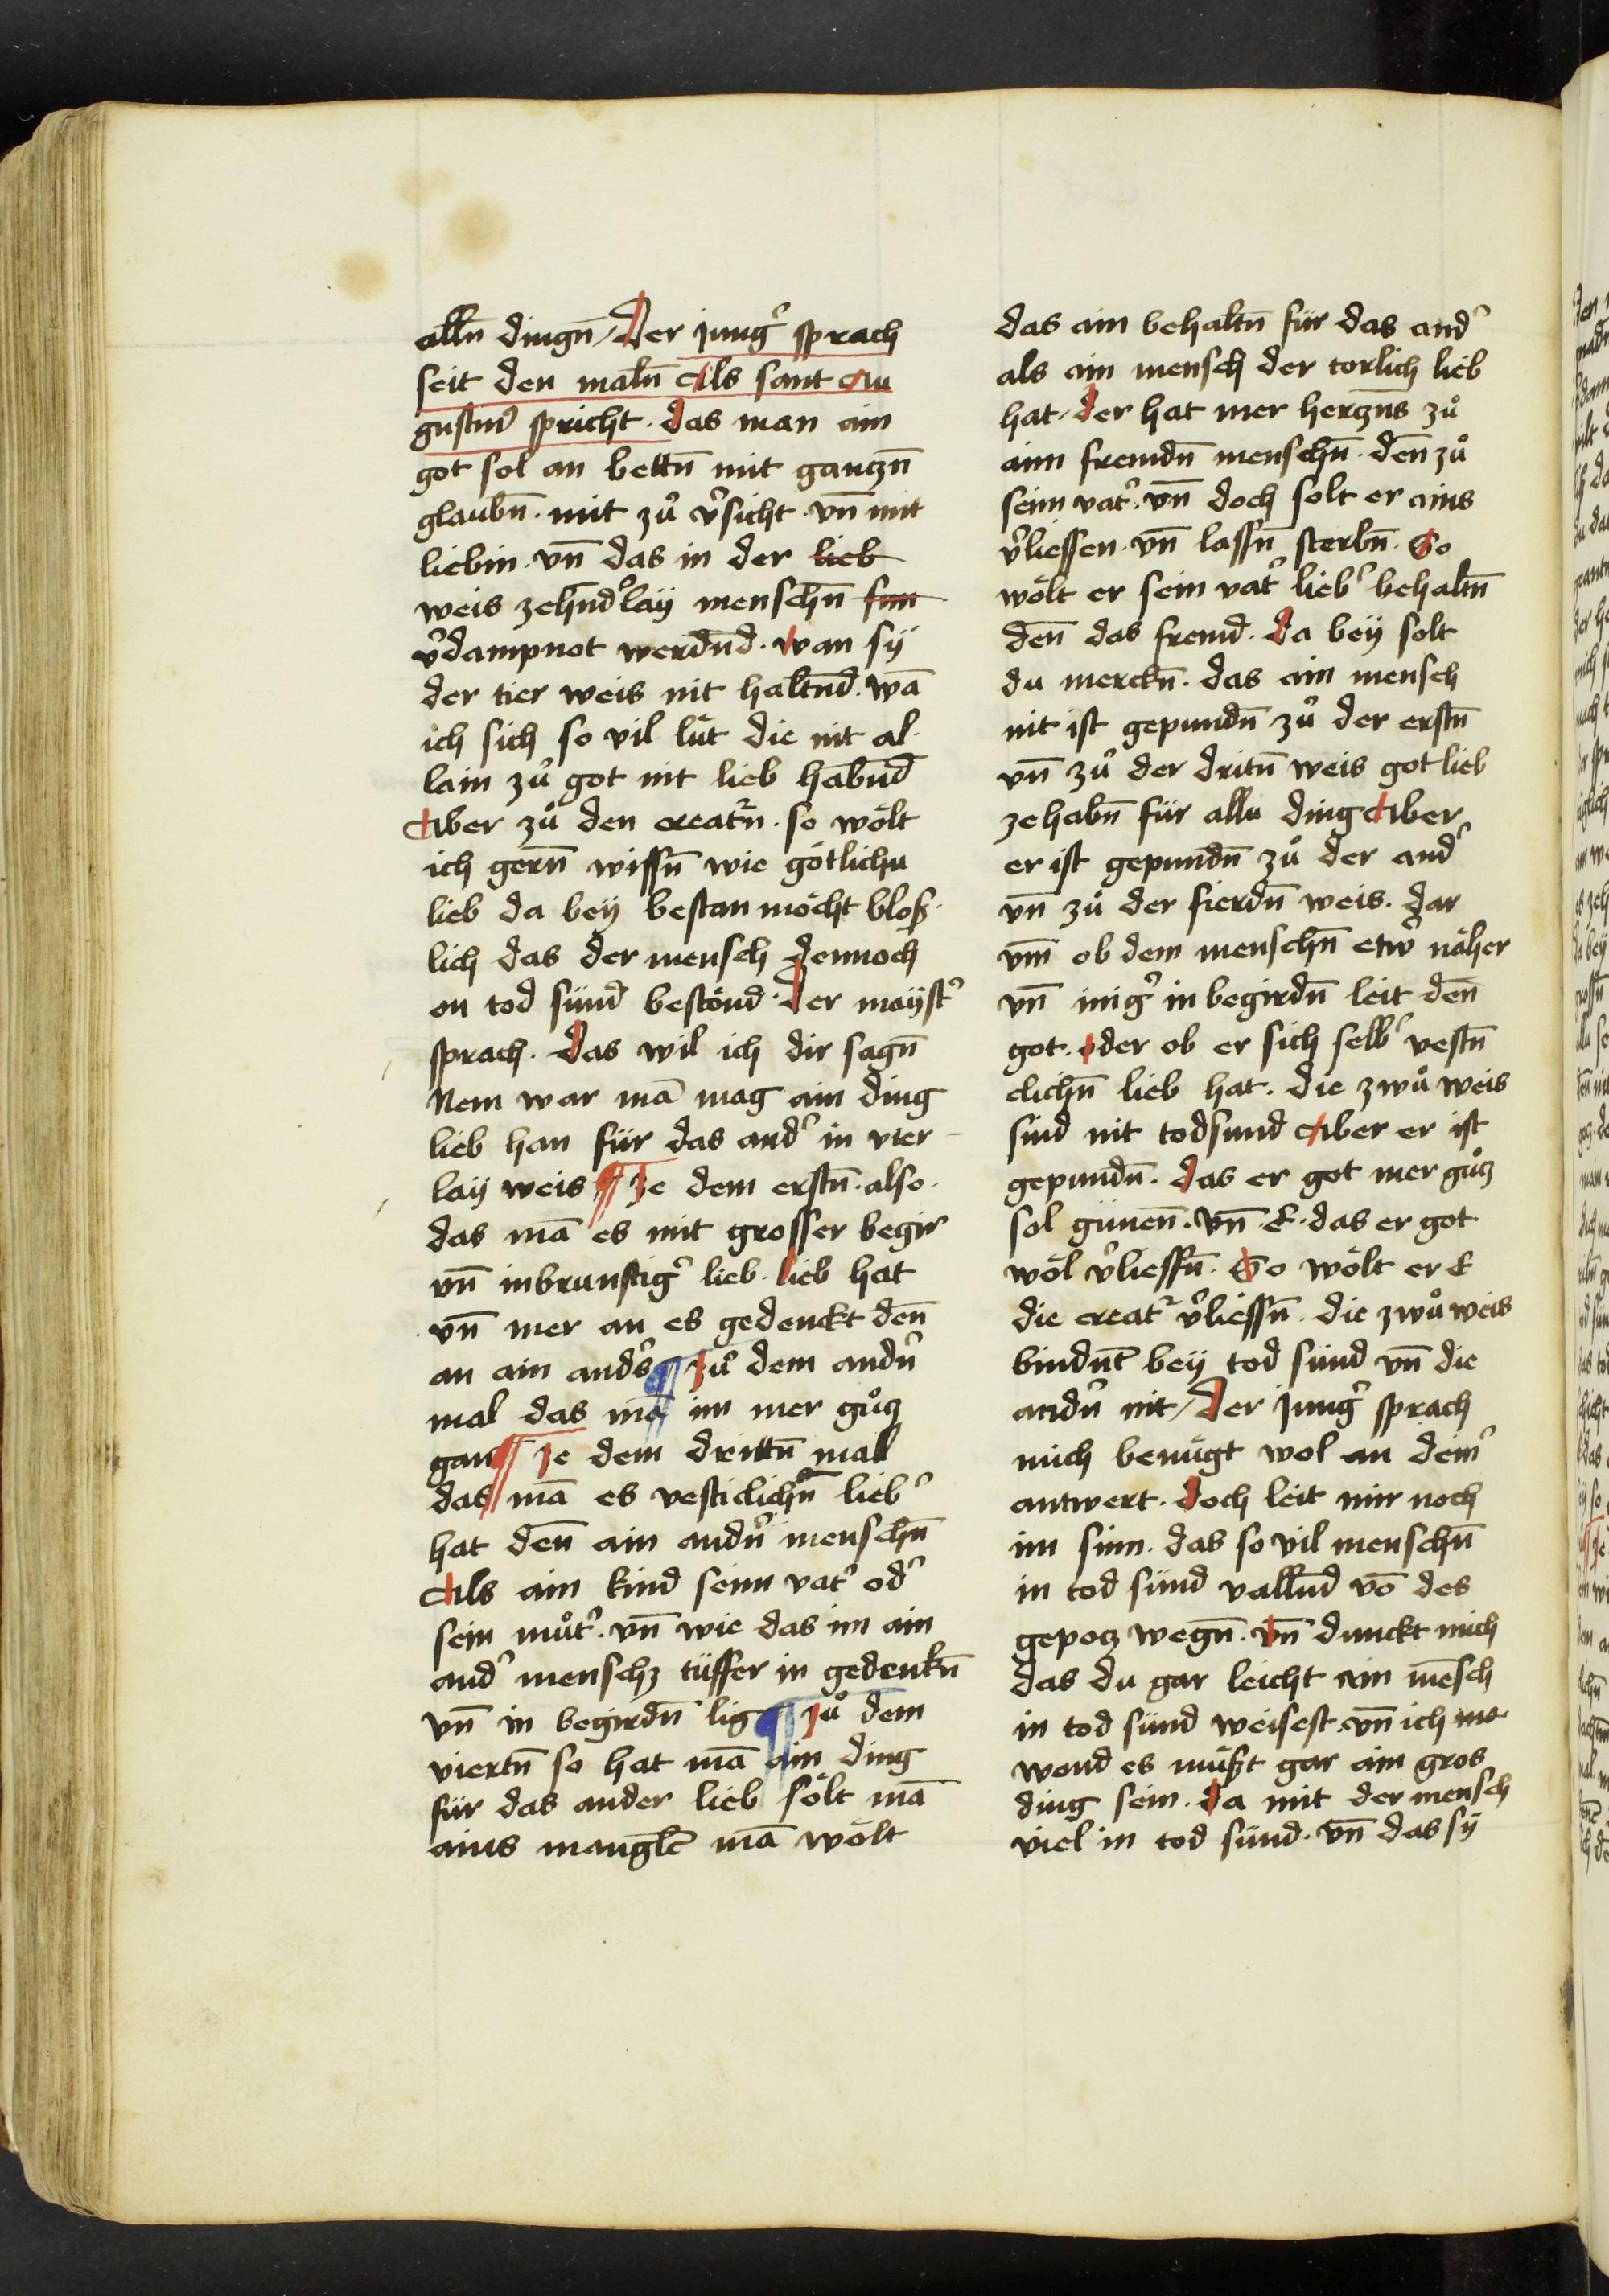 alln̄ dingn̄ / Der jungᷣ sprach
seit den maln̄ Als sant Au
gustinꝰ spricht · das man ain
got sol an bettn̄ mit gantzn̄
glaubn̄ · mit zů vᷣsicht · vn̄ mit
liebin · vn̄ das in der lieb
weis zehn̄dᷣlay menschn̄
vᷣdampnot werdn̄d · wan sÿ
der tier weis nit haltn̄d · wā
ich sich so vil lüt die nit al
lain zů got nit lieb habn̄d
Aber zů den creatᷣn · so wölt
ich gern̄ wissn̄ wie götlichu
lieb da beÿ bestan möcht bloß
lich das der mensch dennoch
on tod sünd bestönd · Der maÿstᷣ
sprach · Das wil ich dir sagn̄
Nem war mā mag ain ding
lieb han für das andᷣ in vier
laÿ weis ¶ Ze dem erstn̄ · also ·
das mā es mit grosser begir
vn̄ inbrunstigᷣ lieb · lieb hat
vn̄ mer an es gedenckt den̄
an ain andᷣs ¶ Zů dem andᷣn
mal das mā im mer gůtz
gan ¶ Ze dem drittn̄ mal
das mā es vesticlichn̄ liebᷣ
hat den̄ ain andᷣn menschn̄
Als ain kind seim vatᷣ odᷣ
sein můtᷣ · vn̄ wie das im ain
andᷣ menschz tüffer in gedenkn̄
vn̄ in begirdn̄ lig ¶ Zů dem
viertn̄ so hat mā ain ding
für das ander lieb sölt mā
ains manglē mā wölt
das ain behaltn̄ für das andᷣ
als ain mensch der torlich lieb
hat / Der hat mer hertzn̄s zů
aim fremdn̄ menschn̄ · den̄ zů
seim vatᷣ · vn̄ doch solt er ains
vᷣliessen · vn̄ lassn̄ sterbn̄ · So
wölt er sein vatᷣ liebᷣ behaltn̄
den̄ das fremd · Da beÿ solt
du merckn̄ · das ain mensch
nit ist gepundn̄ zů der erstn̄
vn̄ zů der dritn̄ weis got lieb
zehabn̄ für allu ding Aber
er ist gepundn̄ zů der andᷣ
vn̄ zů der fierdn̄ weis · dar
vm̄ ob dem menschn̄ etwᷣ näher
vn̄ inigᷣ in begirdn̄ leit den̄
got · oder ob er sich selbᷣ vestn̄
clichn̄ lieb hat · die zwů weis
sind nit todsund Aber er ist
gepundn̄ · das er got mer gůtz
sol günen̄ · vn̄ · E · das er got
wöl vᷣliessn̄ · So wölt er E
die creatᷣ vᷣliessn̄ · die zwů weis
bindn̄t beÿ tod sünd vn̄ die
andᷣn nit / Der jungᷣ sprach
mich benügt wol an deinᷣ
antwert · Doch leit mir noch
im sinn · das so vil menschn̄
in tod sünd valln̄d vō des
gepotz wegn̄ · vn̄ dunckt mich
das du gar leicht ain mēsch
in tod sünd weisest · vn̄ ich
wond es müßt gar ain gros
ding sein · Da mit der mensch
viel in tod sünd · vn̄ das sÿ